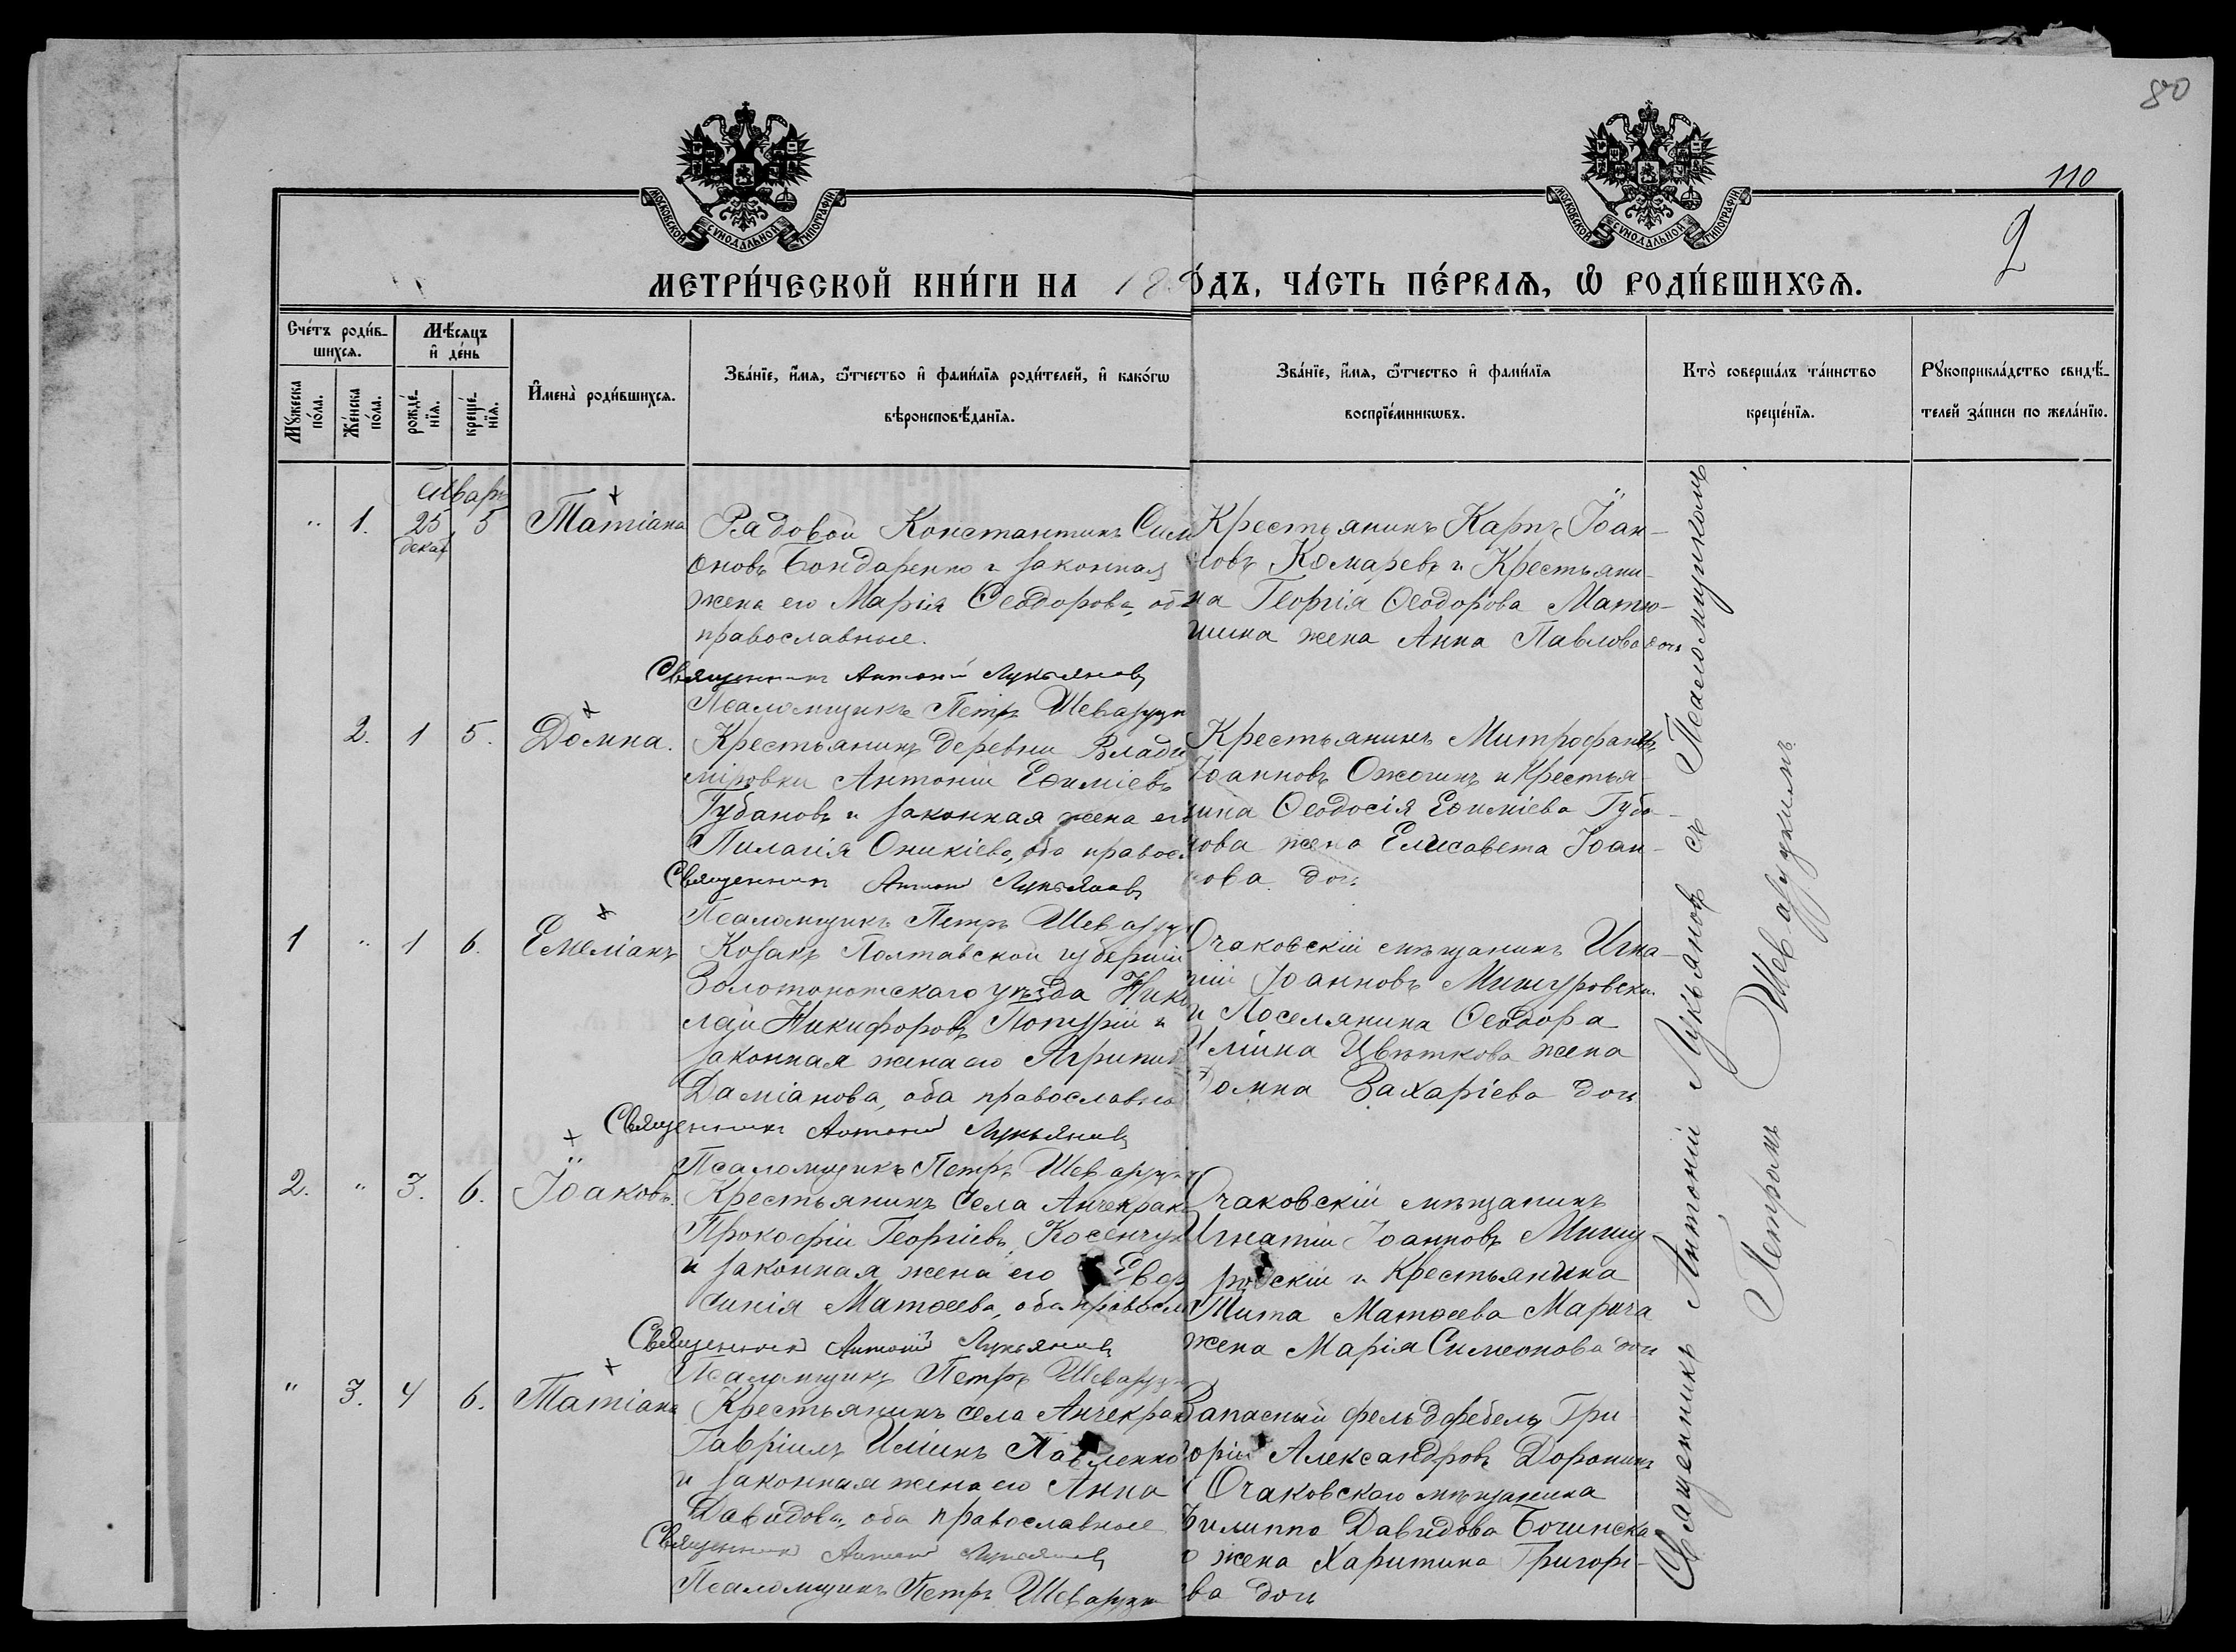 80
110
2
МОСКОВСКОЙ СѴНОДАЛЬНОЙ ТИПОГРАФІИ
МОСКОВСКОЙ СѴНОДАЛЬНОЙ ТИПОГРАФІИ
МЕТРИ́ЧЕСКОЙ КНИ́ГИ НА 18
О́ДЪ, ЧА́СТЬ ПЕ́РВАѦ, Ѡ҆ РОДИ́ВШИХСѦ.
Сче́тъ роди́в-
шихсѧ.
Мѣ́сяцъ
и҆ де́нь
Мꙋ́жеска
по́ла.
Же́нска
по́ла.
рожде́-
нїѧ.
креще́-
нїѧ.
И҆мена̀ роди́вшихсѧ.
Зва́нїе, и҆́мѧ, ѻ҆́тчество и҆ фами́лїѧ роди́телей, и҆ како́гѡ
вѣроисповѣ́данїѧ.
Зва́нїе, и҆́мѧ, ѻ҆́тчество и҆ фами́лїѧ
воспрїе́мникѡвъ.
Кто̀ соверша́лъ та́инство
креще́нїѧ.
Рꙋкоприкла́дство свидѣ́-
телей за́писи по жела́нїю.
Январь
„ 1. 25 5 Татіана
декаб
Рядовой Константинъ Сим
оновъ Бондаренко и законная
жена его Марія Ѳеодорова, об
православные.
Священникъ Антоній Лукьяновъ
Псаломщикъ Петръ Шеваруцк
Крестьянинъ Карпъ Іоан-
новъ Комаревъ и Крестьяни-
на Георгія Ѳеодорова Матю-
шина жена Анна Павлова дочь
2. 1 5. Домна.
Крестьянинъ деревни Влади
міровки Антоній Еѳиміевъ
Губановъ и законная жена его
Пилагія Оникіева, оба правосл
Священникъ Антоній Лукьяновъ
Псаломщикъ Петръ Шеваруц
Крестьянинъ Митрофанъ
Іоанновъ Ожогинъ и Крестья-
нина Ѳеодосія Еѳиміева Губа-
нова жена Елисавета Іоан-
нова дочь
1 „ 1 6. Емеліанъ
Козакъ Полтавской губерніи
Золотоношскаго уѣзда Нико
лай Никифоровъ Попурій и
законная жена его Агрипин
Даміанова, оба православны
Священникъ Антоній Лукьяновъ
Псаломщикъ Петръ Шеваруцк
Очаковскій мѣщанинъ Игна-
тій Іоанновъ Мишуровскій
и Поселянина Ѳеодора
Иліина Цвѣткова жена
Домна Захаріева дочь
2. „ 3. 6. Іоаковъ.
Крестьянинъ села Анчекрак
Прокофій Георгіевъ Косенчук
и законная жена его Евдо
Матѳеева, оба правосл
Священникъ Антоній Лукьяновъ
Псаломщикъ Петръ Шеваруцк
Очаковскій мѣщанинъ
Игнатій Іоанновъ Мишу-
ровскій и Крестьянина
Тита Матѳеева Марича
жена Марія Симеонова дочь
„ 3. 4 6. Татіана
Крестьянинъ села Анчекрак
Гавріилъ Иліинъ Павленко
и законная жена его Анна
Давидова, оба православные
Священникъ Антоній Лукьяновъ
Псаломщикъ Петръ Шеваруцк
Запасный фельдфебель Гри
горій Александровъ Доронинъ
и Очаковскаго мѣщанина
Филиппа Давидова Бочинска
го жена Харитина Григорі-
ева дочь
Священникъ Антоній Лукьяновъ съ Псаломщикомъ
Петромъ Шеваруцкимъ